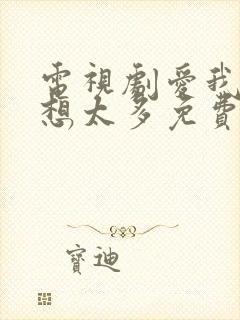 電視劇愛我
想太多免費
寶迪